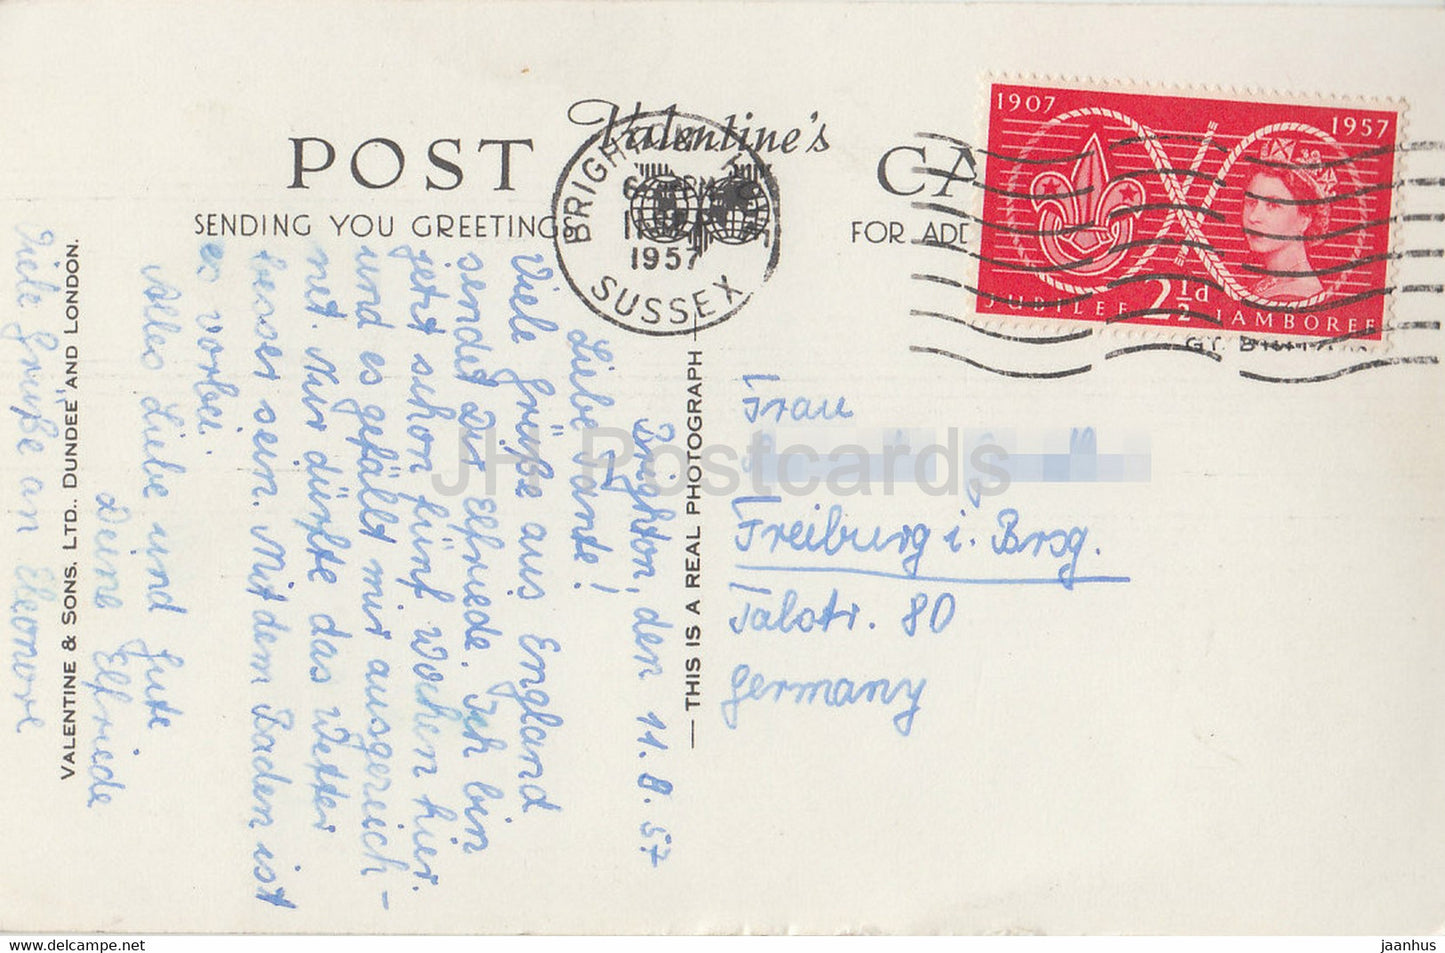 POST CA
Valentine's
SENDING YOU GREETINGS
FOR ADD
BRIGHTON
1957
SUSSEX
1907
1957
2½d
JUBILEE JAMBOREE
GT. BRITAIN
Brighton, den 11.8.57
Liebe Tante!
Viele Grüße aus England
sendet Dir Elfriede. Ich bin
jetzt schon fünf Wochen hier
und es gefällt mir ausgezeich-
net. Nur dürfte das Wetter
besser sein. Mit dem Baden ist
es vorbei.
Alles Liebe und Gute
Deine Elfriede
Viele Grüße an Eleonore
VALENTINE & SONS, LTD., DUNDEE AND LONDON.
— THIS IS A REAL PHOTOGRAPH —
Frau
Freiburg i. Brsg.
Talstr. 80
Germany
JH Postcards
https://www.jhpostcards.com
jaanhus / ccpostcards.com